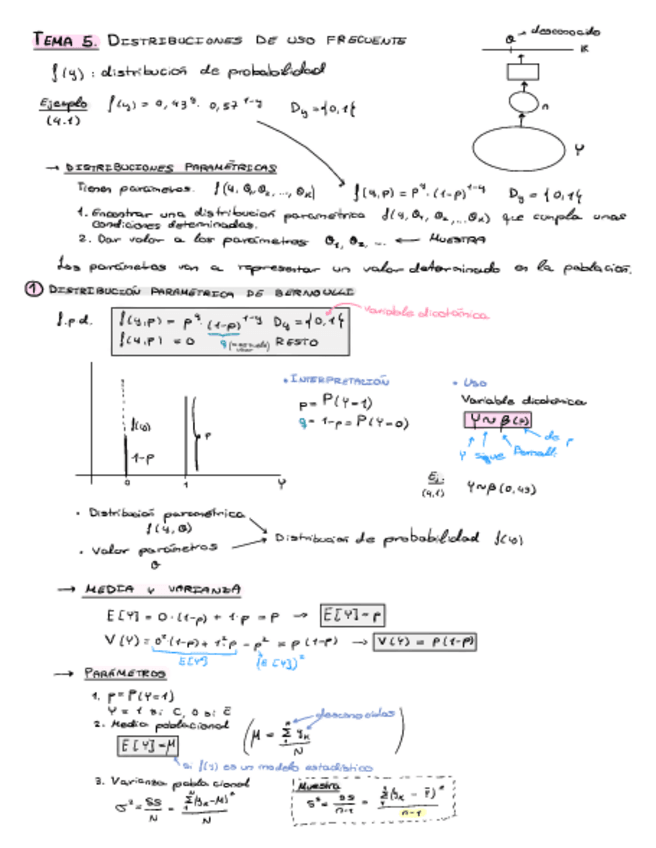 TEMA 5. DISTRIBUCIONES DE USO FRECUENTE
θ → desconocido
R
f(y) : distribución de probabilidad
n
Ejemplo f(y) = 0,43^y · 0,57^1-y D_y = {0,1}
(4.1)
Y
→ DISTRIBUCIONES PARAMÉTRICAS
Tienen parámetros. f(y, θ1, θ2, ..., θk) f(y,p) = p^y · (1-p)^1-y D_y = {0,1}
1. Encontrar una distribución paramétrica f(y, θ1, θ2, ..., θk) que cumpla unas
condiciones determinadas.
2. Dar valor a los parámetros θ1, θ2, ... ← MUESTRA
Los parámetros van a representar un valor determinado en la población.
1 DISTRIBUCIÓN PARAMÉTRICA DE BERNOULLI
variable dicotómica
f.p.d. f(y,p) = p^y · (1-p)^1-y D_y = {0,1}
f(y,p) = 0 q RESTO
• INTERPRETACIÓN
p = P(Y=1)
q = 1-p = P(Y=0)
• USO
Variable dicotómica
Y ~ β(p)
Y sigue Bernoulli de p
Ej: Y ~ β(0,43)
(4.1)
f(y)
1-p
p
0 1 Y
• Distribución paramétrica
f(y, θ)
→ Distribución de probabilidad f(y)
• Valor parámetros
θ
→ MEDIA Y VARIANZA
E[Y] = 0·(1-p) + 1·p = p → E[Y] = p
V(Y) = 0²·(1-p) + 1²·p - p² = p(1-p) → V(Y) = p(1-p)
E[Y²] (E[Y])²
→ PARÁMETROS
1. p = P(Y=1)
Y = 1 si C, 0 si C̄
2. Media poblacional
E[Y] = μ
(μ = Σ y_k / N) desconocidas
si f(y) es un modelo estadístico
3. Varianza poblacional
σ² = SS/N = Σ(y_k - μ)²/N
Muestra
s² = SS/n-1 = Σ(y_k - ȳ)²/n-1